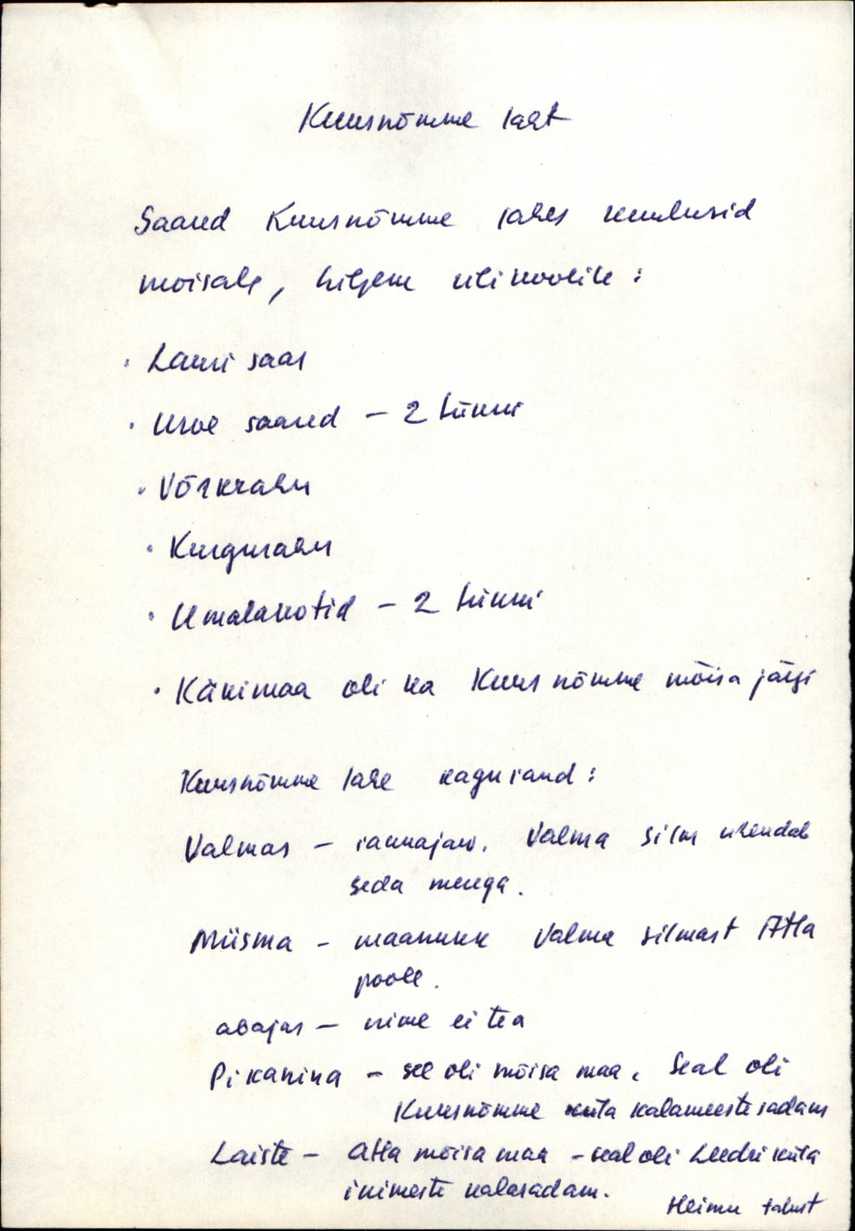 Kuusnõmme laht
Saared Kuusnõmme lahes kuulusid
mõisale, hiljem ülikoolile:
· Lauri saar
· Urve saared – 2 tükki
· Võrkrahu
· Kurgurahu
· Umalakotid – 2 tükki
· Käkimaa oli ka Kuusnõmme mõisa järgi
Kuusnõmme lahe kagurand:
Valmas – rannajärv. Valma silm ühendab
seda merega.
Miisma – maanukk Valma silmast Atla
poole.
abajas – nime ei tea
Pikanina – see oli mõisa maa. Seal oli
Kuusnõmme küla kalameeste sadam
Laiste – Atla mõisa maa – seal oli Leedri küla
inimeste kalasadam.
talust